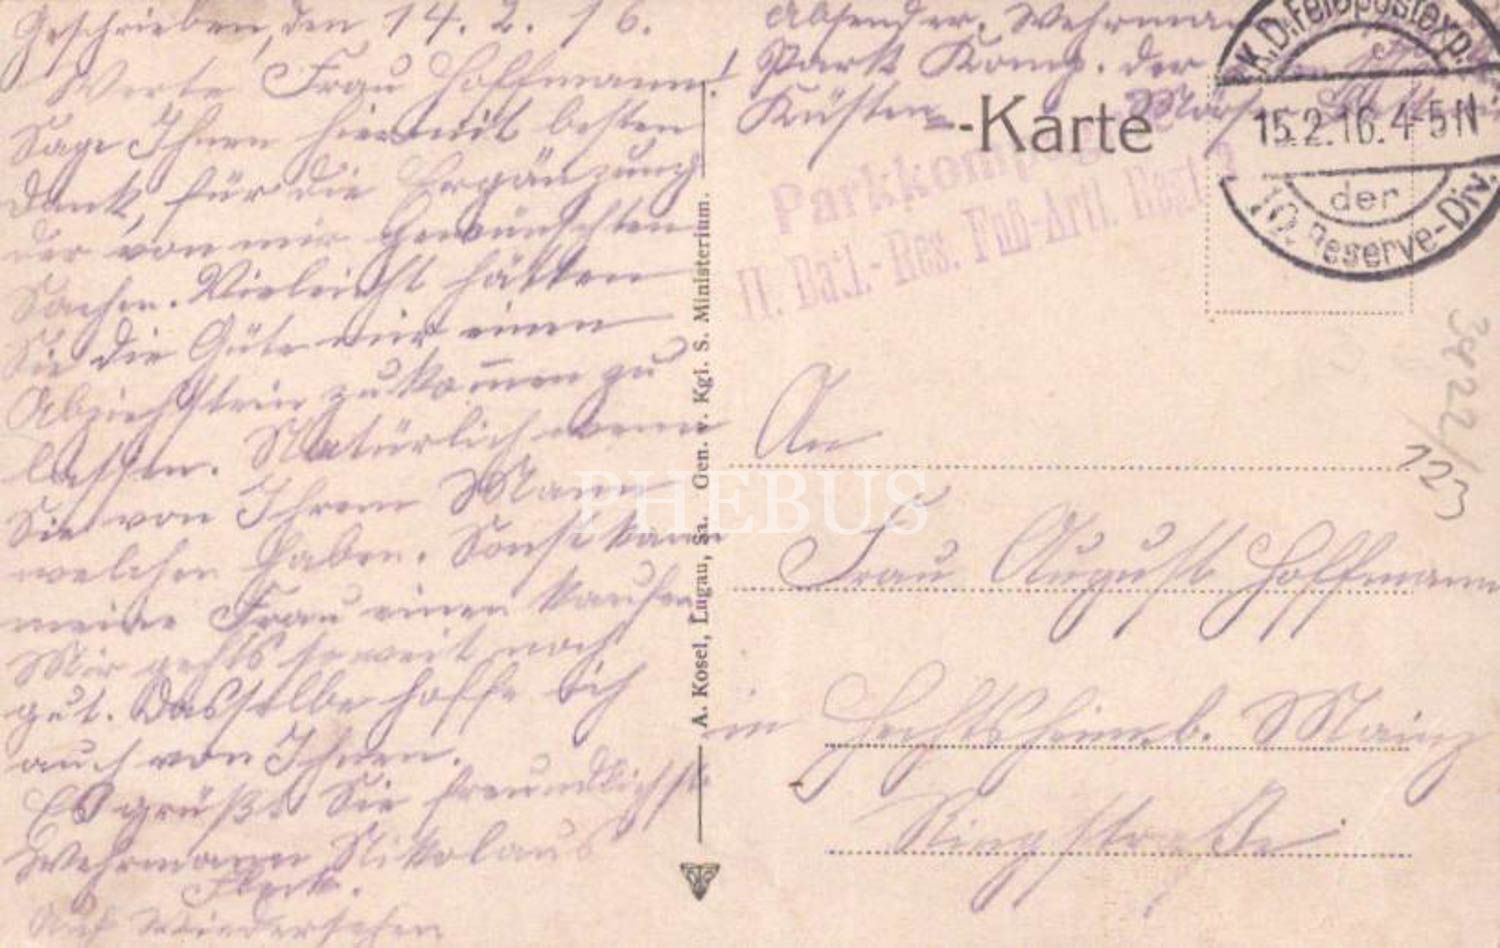 Geschrieben, den 14. 2. 16.
Werte Frau Hoffmann!
Sage Ihnen hiermit besten
Dank, für die Ergänzung
der von mir Gewünschten
Sachen. Vieleicht hätten
Sie die Güte mir einen
Abziehstein zukommen zu
lassen. Natürlich wenn
Sie von Ihrem Mann
welchen haben. Sonst kann
meine Frau einen kaufen
Mir gehts so weit noch
gut. Dasselbe hoffe ich
auch von Ihnen.
Es grüßt Sie freundlichst
Wehrmann Nikolaus
Fleck.
Auf Wiedersehen
A. Kosel, Lugau, Sa. Gen. v. Kgl. S. Ministerium.
Absender, Wehrman
Park Komp. der
Küsten
-Karte
Parkkomp
II. Bat.-Res. Fuß-Artl. Regt. 3
K.D.Feldpostexp.
15.2.16.4-5N
der
10. Reserve-Div.
3422/
123
An
Frau August Hoffmann
in Hechtsheim b. Mainz
Ringstraße
PHEBUS